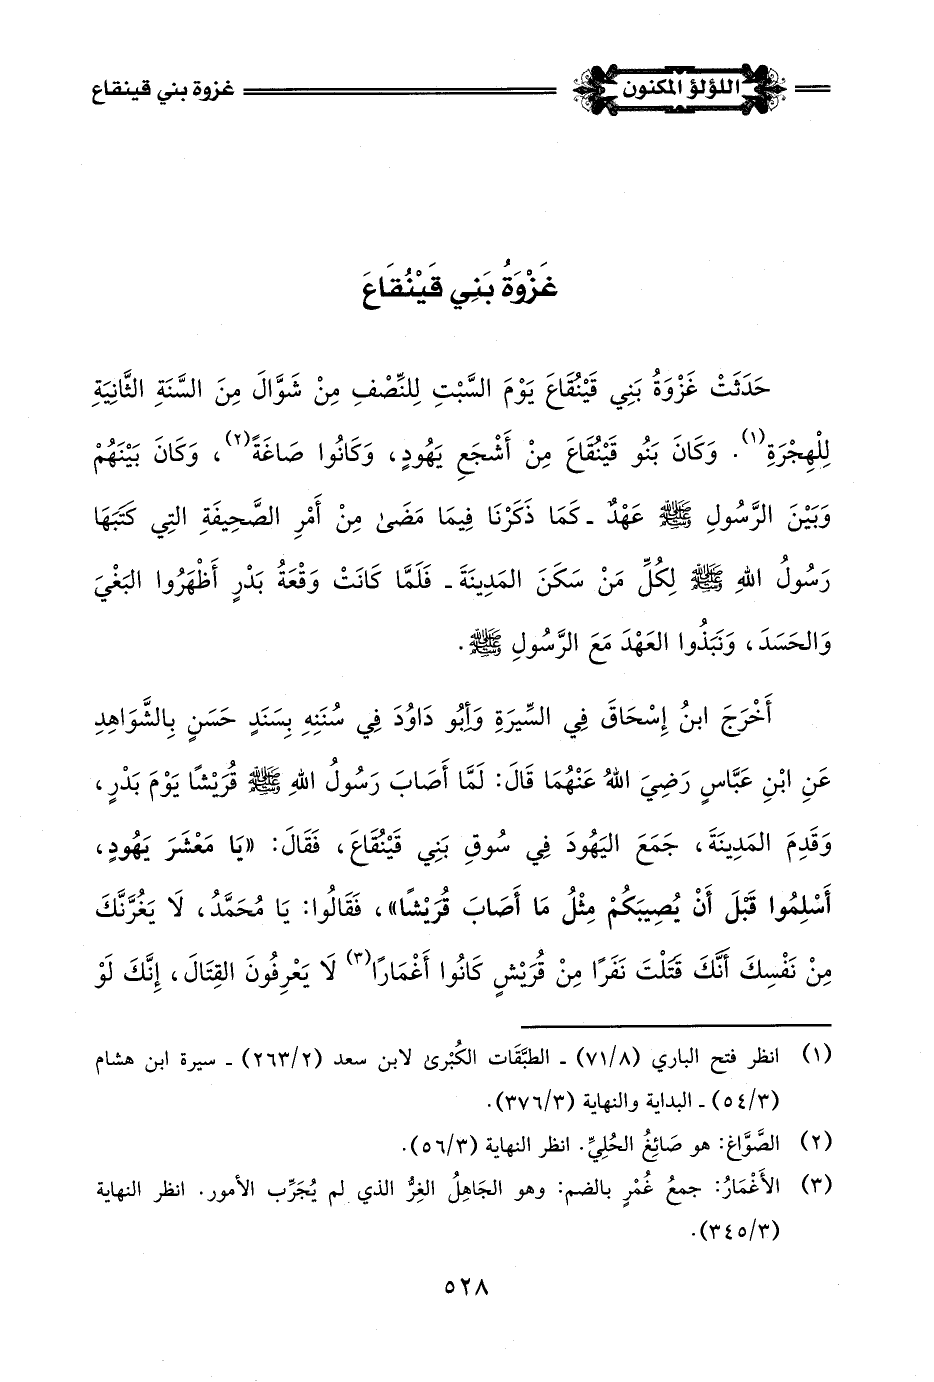 اللؤلؤ المكنون
غزوة بني قينقاع
غَزْوَةُ بَنِي قَيْنُقَاعَ
حَدَثَتْ غَزْوَةُ بَنِي قَيْنُقَاعَ يَوْمَ السَّبْتِ لِلنِّصْفِ مِنْ شَوَّالَ مِنَ السَّنَةِ الثَّانِيَةِ
لِلْهِجْرَةِ(١). وَكَانَ بَنُو قَيْنُقَاعَ مِنْ أَشْجَعِ يَهُودٍ، وَكَانُوا صَاغَةً(٢)، وَكَانَ بَيْنَهُمْ
وَبَيْنَ الرَّسُولِ ﷺ عَهْدٌ ـ كَمَا ذَكَرْنَا فِيمَا مَضَىٰ مِنْ أَمْرِ الصَّحِيفَةِ التِي كَتَبَهَا
رَسُولُ اللهِ ﷺ لِكُلِّ مَنْ سَكَنَ المَدِينَةَ ـ فَلَمَّا كَانَتْ وَقْعَةُ بَدْرٍ أَظْهَرُوا البَغْيَ
وَالحَسَدَ، وَنَبَذُوا العَهْدَ مَعَ الرَّسُولِ ﷺ.
أَخْرَجَ ابنُ إِسْحَاقَ فِي السِّيرَةِ وَأَبُو دَاوُدَ فِي سُنَنِهِ بِسَنَدٍ حَسَنٍ بِالشَّوَاهِدِ
عَنِ ابْنِ عَبَّاسٍ رَضِيَ اللهُ عَنْهُمَا قَالَ: لَمَّا أَصَابَ رَسُولُ اللهِ ﷺ قُرَيْشًا يَوْمَ بَدْرٍ،
وَقَدِمَ المَدِينَةَ، جَمَعَ اليَهُودَ فِي سُوقِ بَنِي قَيْنُقَاعَ، فَقَالَ: «يَا مَعْشَرَ يَهُودٍ،
أَسْلِمُوا قَبْلَ أَنْ يُصِيبَكُمْ مِثْلُ مَا أَصَابَ قُرَيْشًا»، فَقَالُوا: يَا مُحَمَّدُ، لَا يَغُرَّنَّكَ
مِنْ نَفْسِكَ أَنَّكَ قَتَلْتَ نَفَرًا مِنْ قُرَيْشٍ كَانُوا أَغْمَارًا(٣) لَا يَعْرِفُونَ القِتَالَ، إِنَّكَ لَوْ
(١) انظر فتح الباري (٧١/٨) ـ الطبَّقَات الكُبْرىٰ لابن سعد (٢٦٣/٢) ـ سيرة ابن هشام
(٥٤/٣) ـ البداية والنهاية (٣٧٦/٣).
(٢) الصَّوَّاغ: هو صَائِغُ الحُلِيِّ. انظر النهاية (٥٦/٣).
(٣) الأَغْمَارُ: جمعُ غُمْرٍ بالضم: وهو الجَاهِلُ الغِرُّ الذي لم يُجَرِّب الأمور. انظر النهاية
(٣٤٥/٣).
٥٢٨